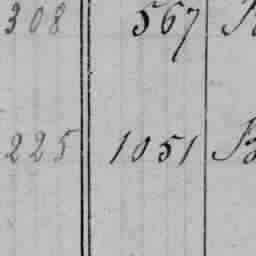 308 567
225 1051 B